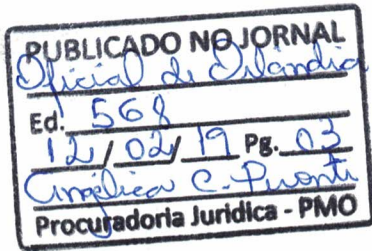 PUBLICADO NO JORNAL
Oficial de Orlândia
Ed. 568
12/02/19 Pg. 03
Angélica C.
Procuradoria Juridica - PMO